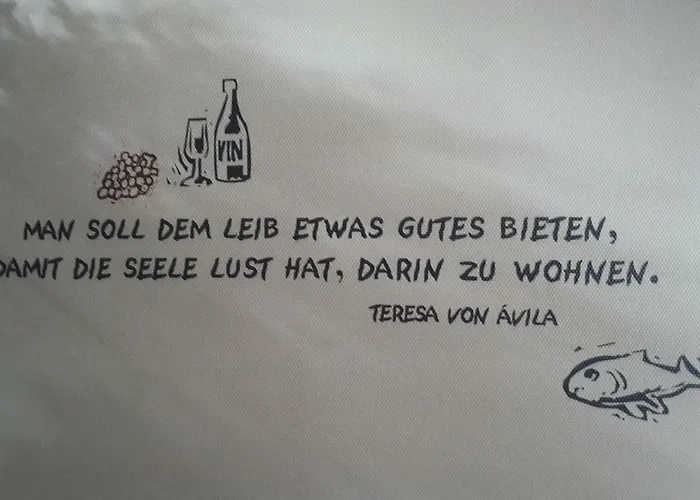 VIN
MAN SOLL DEM LEIB ETWAS GUTES BIETEN,
DAMIT DIE SEELE LUST HAT, DARIN ZU WOHNEN.
TERESA VON ÁVILA